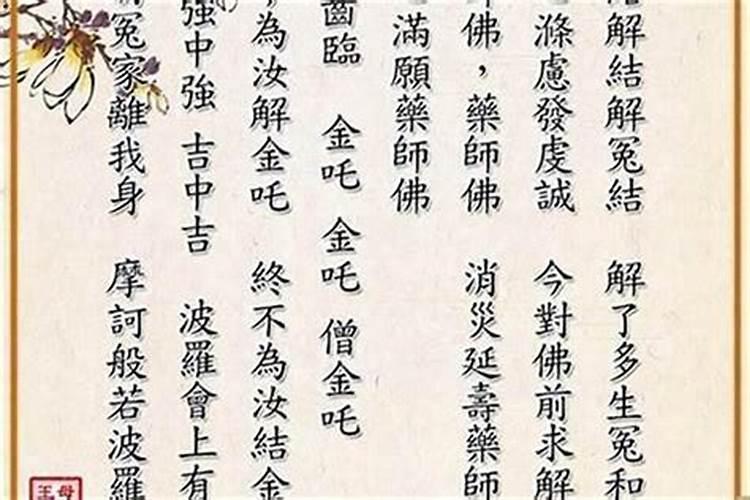 解結解冤結　解了多生冤和
滌慮發虔誠　今對佛前求解
佛，藥師佛　消災延壽藥師
滿願藥師佛
齒臨　金吒　金吒　僧金吒
為汝解金吒　終不為汝結金
強中強　吉中吉　波羅會上有
冤家離我身　摩訶般若波羅